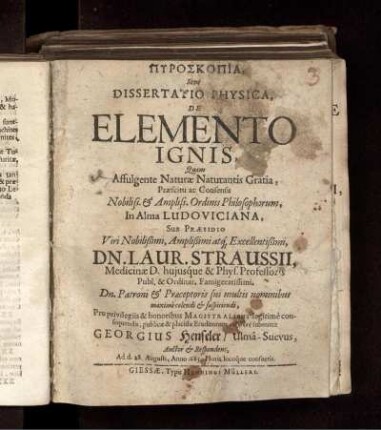 3
ΠΥΡΟΣΚΟΠΙΑ,
Seu
DISSERTATIO PHYSICA,
DE
ELEMENTO
IGNIS,
Quam
Affulgente Naturæ Naturantis Gratia,
Præscitu ac Consensu
Nobiliss. & Ampliss. Ordinis Philosophorum,
In Alma LUDOVICIANA,
SUB PRÆSIDIO
Viri Nobilissimi, Amplissimi atq; Excellentissimi,
DN. LAUR. STRAUSSII,
Medicinæ D. hujusque & Phys. Professoris
Publ. & Ordinar. Famigeratissimi,
Dn. Patroni & Præceptoris sui multis nominibus
maximè colendi & suspiciendi,
Pro privilegiis & honoribus MAGISTRALIBUS legitimè con-
sequendis, publicæ & placidæ Eruditorum
GEORGIUS Henseler / Ulmâ-Suevus,
Auctor & Respondens,
Ad d. 28. Augusti, Anno
GIESSÆ, Typis MÜLLERI.